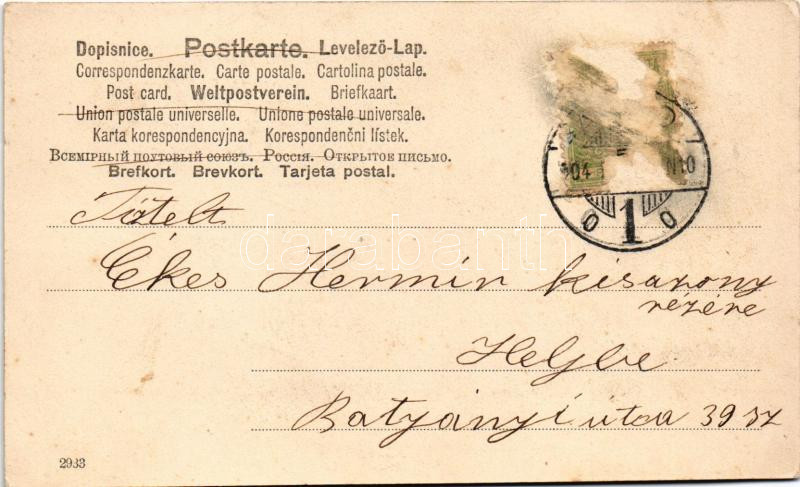 Dopisnice. Postkarte. Levelező-Lap.
Correspondenzkarte. Carte postale. Cartolina postale.
Post card. Weltpostverein. Briefkaart.
Union postale universelle. Unione postale universale.
Karta korespondencyjna. Korespondenční lístek.
Всемірный почтовый союзъ. Россія. Открытое письмо.
Brefkort. Brevkort. Tarjeta postal.
904 N10
1
Tiztelt
Ékes Hermin kisasony
rézére
Helybe
Batyányi útca 39 sz
darabanth
2933